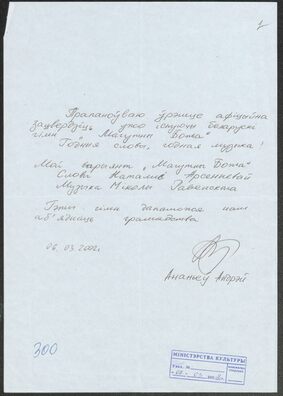 Прапаноўваю ўрэшце афіцыйна
зацвердзіць ужо існуючы беларускі
гімн "Магутны Божа"
Годныя словы, годная музыка!
Мой варыянт "Магутны Божа"
Словы Наталлі Арсенневай
Музыка Міколы Равенскага
Гэты гімн дапаможа нам
аб'яднаць грамадства
06.03.2002г.
Ананьеў Андрэй
300
МІНІСТЭРСТВА КУЛЬТУРЫ